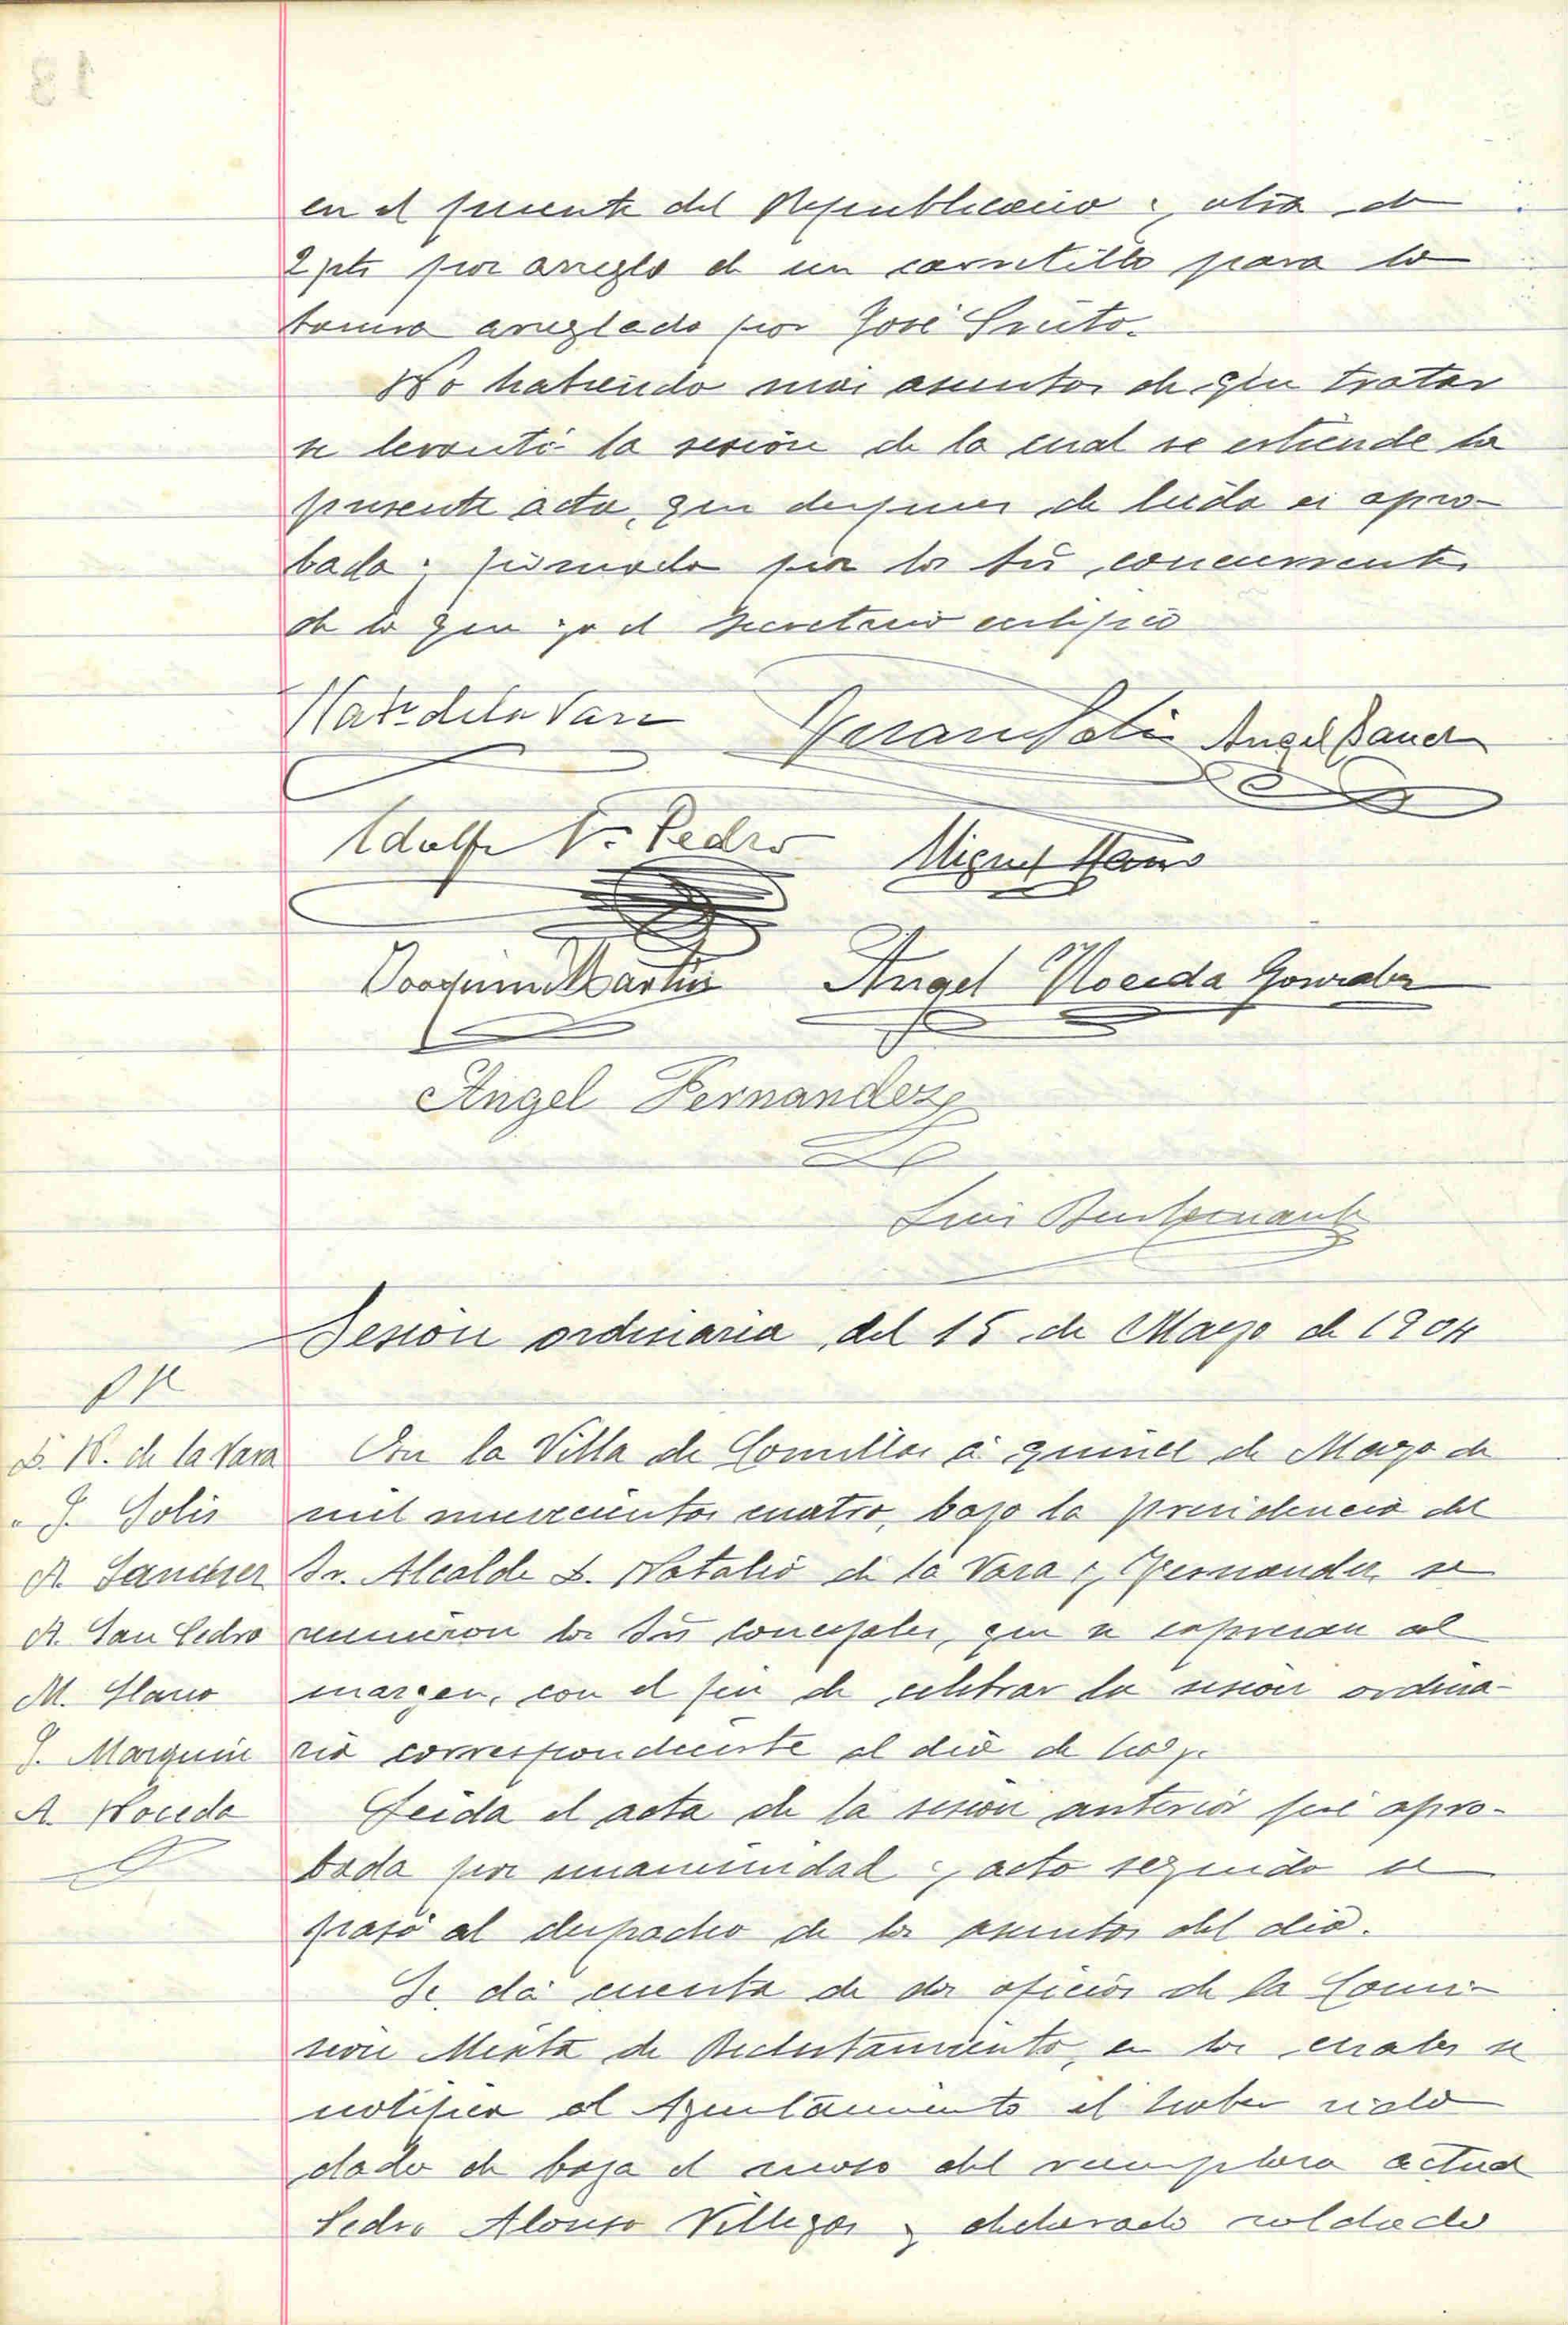 en el puente del Republicano y otra de
2 pts por arreglo de un carretillo para la
arreglado por José Prieto.
No habiendo mas asuntos de que tratar
se levantó la sesión de la cual se extiende la
presente acta, que despues de leida es apro-
bada y firmada por los Sres concurrentes
de lo que yo el Secretario certifico
Nat.o de la Vara
Solis Angel Sanch
Adolfo S. Pedro Miguel Llano
Joaquin Martin Angel Noceda Gonzalez
Angel Fernandez
Luis
Sesión ordinaria del 15 de Mayo de 1904
D. N. de la Vara
" J. Solis
A. Sanchez
A. San Pedro
M. Llano
J. Marquin
A. Noceda
En la Villa de Comillas á quince de Mayo de
mil novecientos cuatro, bajo la presidencia del
Sr. Alcalde D. Natalio de la Vara y Fernandez se
reunieron los Sres Concejales, que se expresan al
margen, con el fin de celebrar la sesión ordina-
ria correspondiente al dia de hoy.
Leida el acta de la sesión anterior fué apro-
bada por unanimidad y acto seguido se
pasó al despacho de los asuntos del dia.
Se dá cuenta de dos oficios de la Comi-
sion Mixta de Reclutamiento, en los cuales se
notifica al Ayuntamiento el haber sido
dado de baja el mozo del reemplazo actual
Pedro Alonso Villegas y declarado soldado